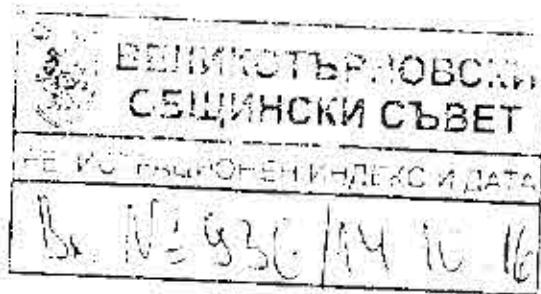 ВЕЛИКОТЪРНОВСКИ
ОБЩИНСКИ СЪВЕТ
РЕГИСТРАЦИОНЕН ИНДЕКС И ДАТА
Вх. № 936/14 10 16